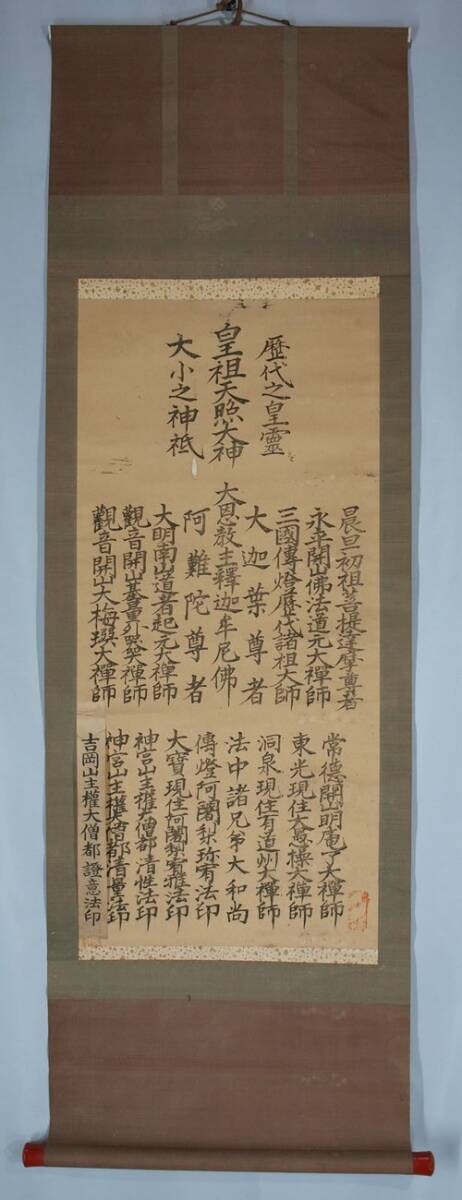 歷代之皇靈
皇祖天照大神
大小之神祇
晨旦初祖菩提達摩尊者
永平開山佛法道元大禪師
三國傳燈歷代諸祖大師
大迦葉尊者
大恩教主釋迦牟尼佛
阿難陀尊者
大明南山道者起元大禪師
觀音開山碁量外大禪師
觀音開山大梅璨大禪師
常德開山明庵了大禪師
東光現住大愚操大禪師
洞泉現住有道州大禪師
法中諸兄弟大和尚
傳燈阿闍梨珎宥法印
大寶現住阿闍梨宥雅法印
神宮山主權大僧都清性法印
神宮山主權大僧都清量法印
吉岡山主權大僧都證意法印